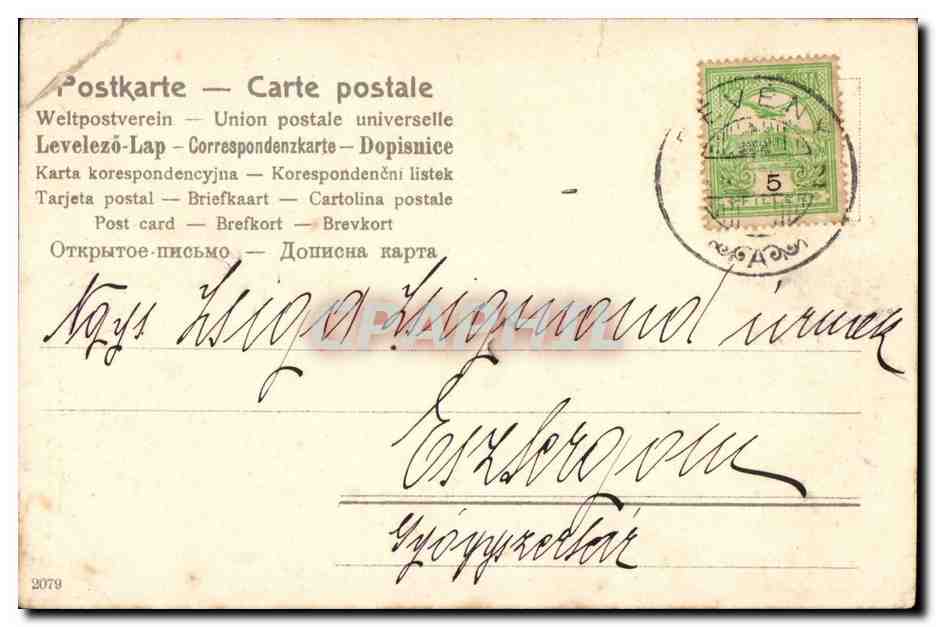 Postkarte — Carte postale
Weltpostverein — Union postale universelle
Levelező-Lap – Correspondenzkarte – Dopisnice
Karta korespondencyjna — Korespondenčni listek
Tarjeta postal — Briefkaart — Cartolina postale
Post card — Brefkort — Brevkort
Открытое-письмо — Дописна карта
5
FILLÉR
A
Ngys Zsiga Zsigmond úrnak
CPARHIL
Esztergom
Gyógyszertár
2079